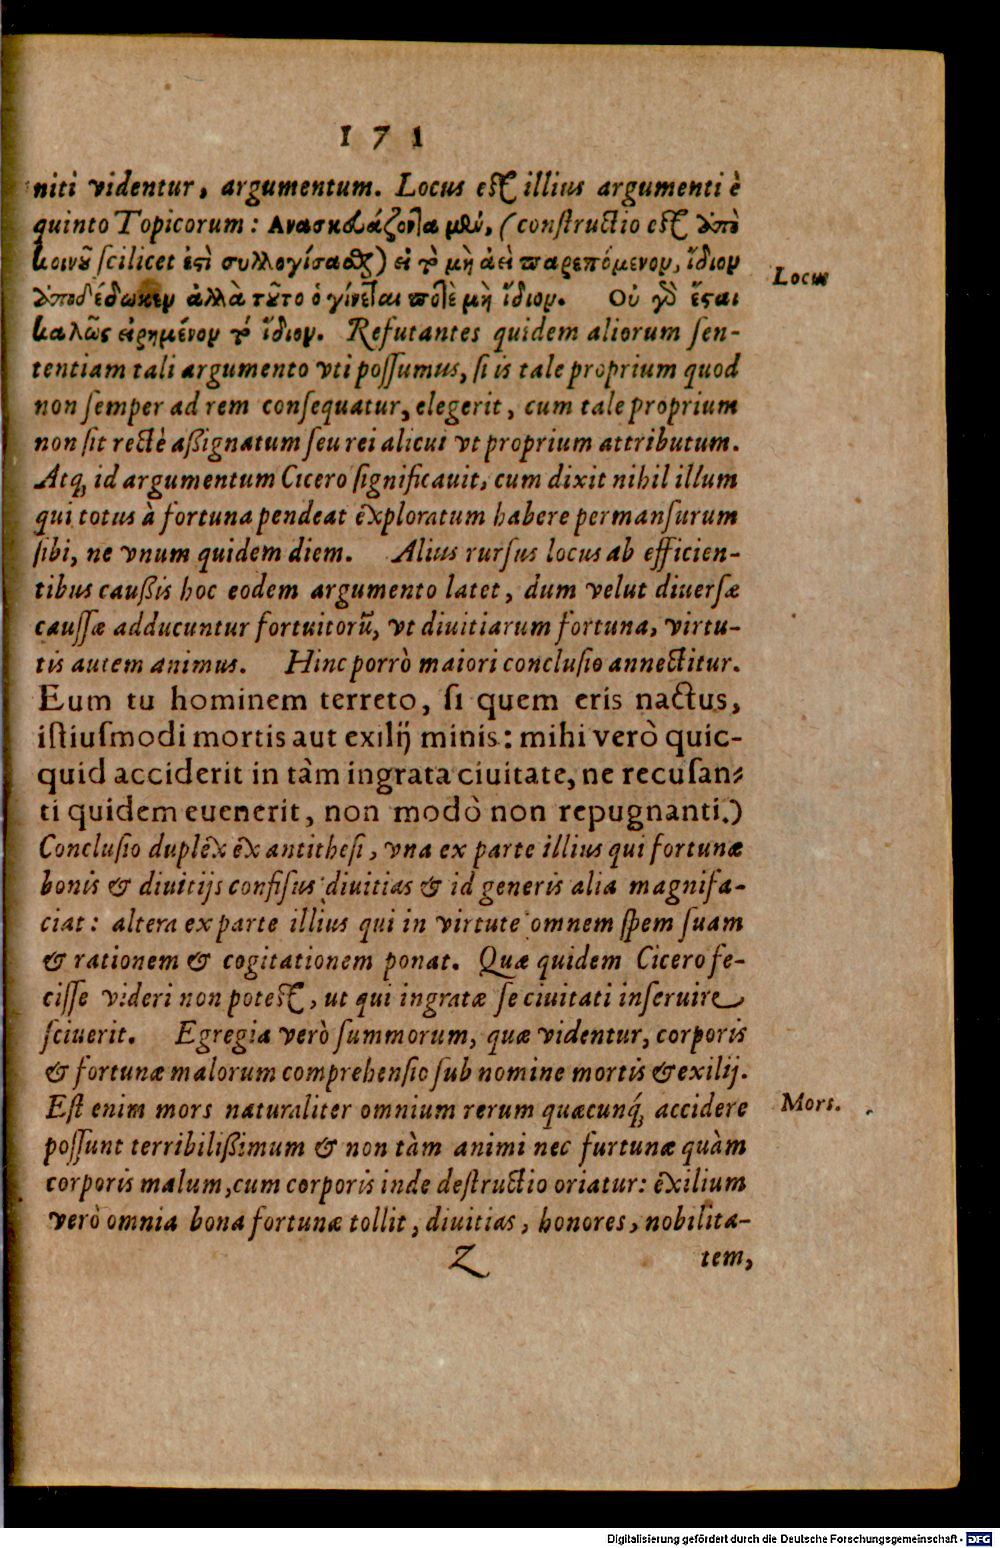 171
niti videntur, argumentum. Locus est illius argumenti è
quinto Topicorum: Ανασκευάζοντα μὲν, (constructio est ἀπὸ
κοινοῦ scilicet ἐςὶ συλλογίσασθαι) εἰ τὸ μὴ ἀεὶ παρεπόμενον, ἴδιον
Locus
ἀποδέδωκεν ἀλλὰ τοῦτο ὃ γίνεται ποτὲ μὴ ἴδιον. Οὐ γὰρ ἔςαι
καλῶς εἰρημένον τὸ ἴδιον. Refutantes quidem aliorum ſen-
tentiam tali argumento vti poſſumus, ſi is tale proprium quod
non ſemper ad rem conſequatur, elegerit, cum tale proprium
non ſit rectè aßignatum ſeu rei alicui vt proprium attributum.
Atq; id argumentum Cicero ſignificauit, cum dixit nihil illum
qui totus à fortuna pendeat exploratum habere permanſurum
ſibi, ne vnum quidem diem. Alius rurſus locus ab efficien-
tibus caußis hoc eodem argumento latet, dum velut diuerſæ
cauſſæ adducuntur fortuitorũ, vt diuitiarum fortuna, virtu-
tis autem animus. Hinc porrò maiori concluſio annectitur.
Eum tu hominem terreto, ſi quem eris nactus,
iſtiuſmodi mortis aut exilij minis: mihi verò quic-
quid acciderit in tàm ingrata ciuitate, ne recuſan-
ti quidem euenerit, non modò non repugnanti.)
Concluſio duplex ex antitheſi, vna ex parte illius qui fortunæ
bonis & diuitijs confiſus diuitias & id generis alia magnifa-
ciat: altera ex parte illius qui in virtute omnem ſpem ſuam
& rationem & cogitationem ponat. Quæ quidem Cicero fe-
ciſſe videri non potest, ut qui ingratæ ſe ciuitati inſeruire
ſciuerit. Egregia verò ſummorum, quæ videntur, corporis
& fortunæ malorum comprehenſio ſub nomine mortis & exilij.
Eſt enim mors naturaliter omnium rerum quæcunq́; accidere
Mors.
poſſunt terribilißimum & non tàm animi nec furtunæ quàm
corporis malum, cum corporis inde deſtructio oriatur: exilium
verò omnia bona fortunæ tollit, diuitias, honores, nobilita-
Z
tem,
Digitalisierung gefördert durch die Deutsche Forschungsgemeinschaft - DFG